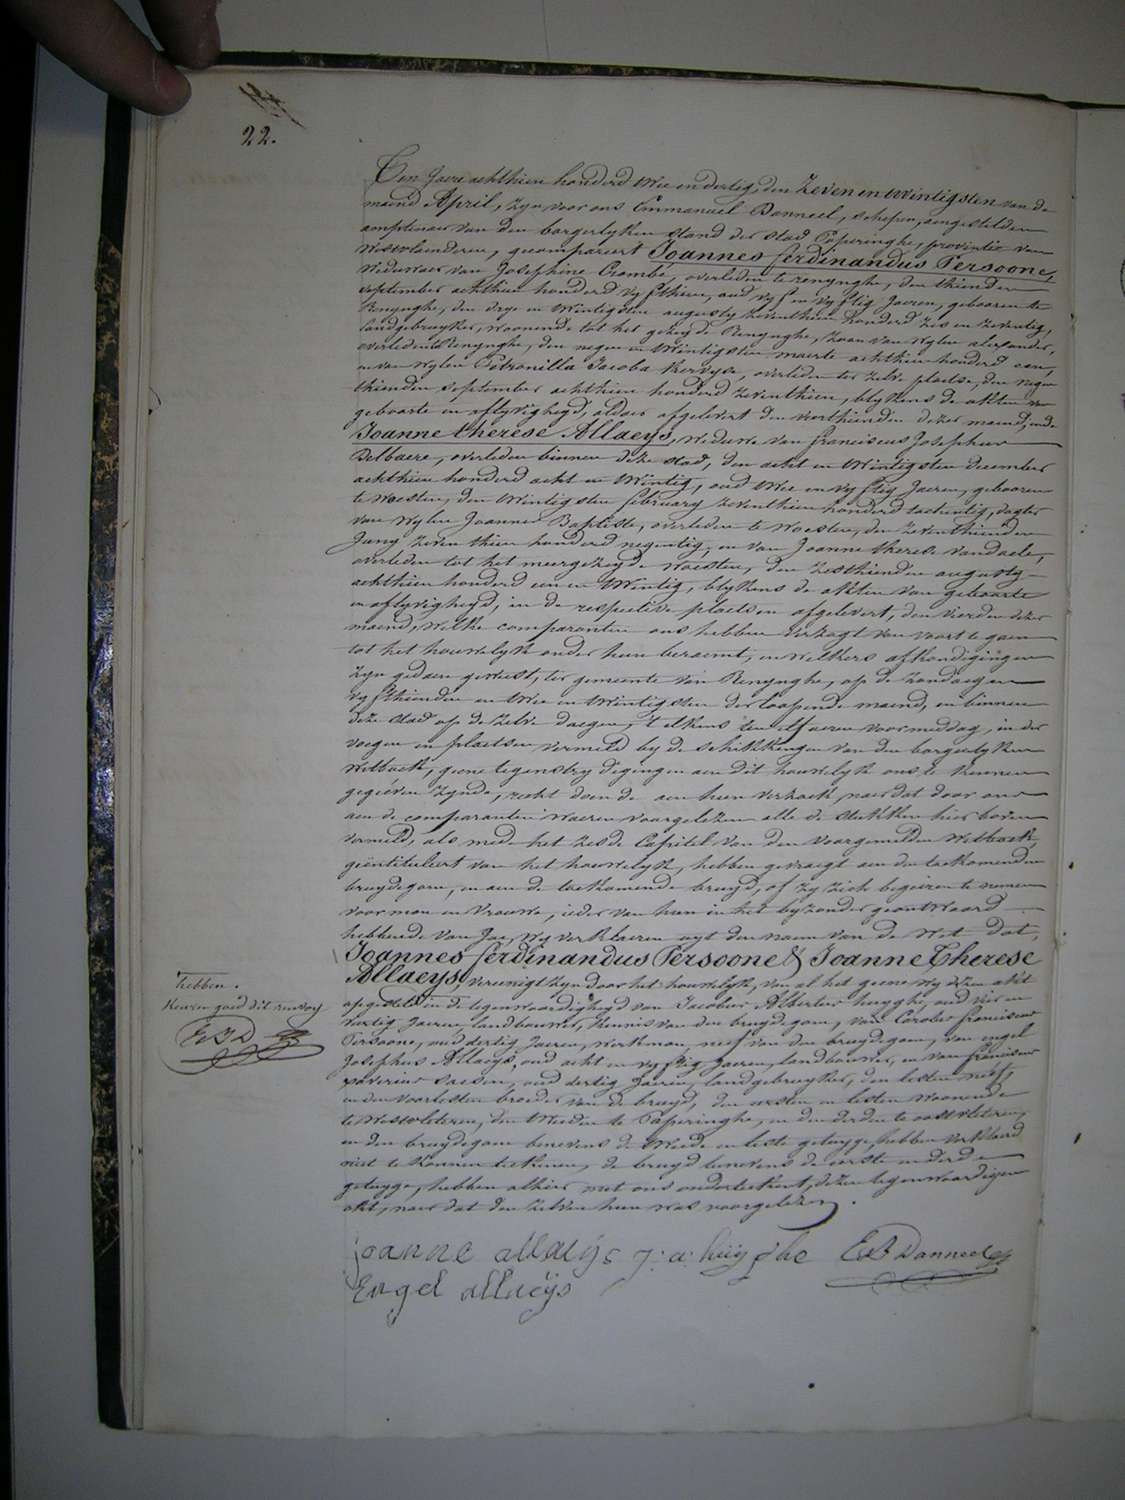 22.
Ten Jaere achthien honderd twee en dertig, den zeven en twintigsten van de
maend April, zyn voor ons Emmanuel Danneel, schepen, aengestelden
amptenaer van den borgerlyken stand der stad Poperinghe, provintie van
Westvlaenderen, gecompareert Joannes ferdinandus Persoone,
Weduwaer van Josephine Crombé, overleden te renynghe, den thienden
september achthien honderd vyfthien, oud vyf en vyftig Jaeren, gebooren te
Renynghe, den drye en twintigsten augusty zeventhien honderd zes en zeventig,
landgebruyker, woonende tot het gezeyde Renynghe, zoon van wylen alexander,
overleden te Renynghe, den negen en twintigsten maerte achthien honderd een,
en van wylen Petronilla Jacoba Kervyn, overleden ter zelve plaetse, den negen
thienden september achthien honderd zeventhien, blykens de akten van
geboorte en aflyvigheyd, aldaer afgelevert den veerthienden dezer maend, ende
Joanne therese Allaeys, weduwe van franciscus Josephus
Delbaere, overleden binnen deze stad, den acht en twintigsten december
achthien honderd acht en twintig, oud twee en vyftig Jaeren, gebooren
te Woesten, den twintigsten february zeventhien honderd tachentig, dogter
van wylen Joannes Baptiste, overleden te Woesten, den zeventhienden
Juny zeventhien honderd negentig, en van Joanne therese Vandaele,
overleden tot het meergezeyde Woesten, den zesthienden augusty
achthien honderd een en twintig, blykens de akten van geboorte
en aflyvigheyd, in de respective plaetsen afgelevert, den vierden dezer
maend, welke comparanten ons hebben verzogt van voort te gaen
tot het houwelyk onder hun beraemt, en welkers afkondigingen
zyn gedaen geweest, ter gemeente van Renynghe, op de zondaegen
vyfthienden en twee en twintigsten der loopende maend, en binnen
deze stad op de zelve daegen, t'elkens ten elf ueren voormiddag, in der
voegen en plaetsen vermeld by de schikkingen van den borgerlyken
wetboek, geene tegenstrydigingen aen dit houwelyk ons te kennen
gegeven zynde, recht doende aen hun verzoek, naer dat door ons
aen de comparanten waeren voorgelezen alle de stukken hier boven
vermeld, als mede het zesde Capitel van den voorgemelden wetboek,
geintituleert van het houwelyk, hebben gevraegt aen den toekomenden
bruydegom, en aen de toekomende bruyd, of zy zich begeiren te nemen
voor man en vrouwe, ieder van hun in het byzonder geantwoord
hebbende van Jae, wy verklaeren uyt den naem van de Wet dat,
Joannes ferdinandus Persoone & Joanne Therese
Allaeys, vereenigt zyn door het houwelyk, van al het geene wy dezen akt
opgesteld in de tegenwoordigheyd van Jacobus Albertus huyghe, oud vier en
veertig Jaeren, landbouwer, kennis van den bruydegom, van Carolus franciscus
Persoone, oud dertig Jaeren, werkman, neef van den bruydegom, van engel
Josephus Allaeys, oud acht en vyftig Jaeren, landbouwer, en van franciscus
xaverius Saesen, oud dertig Jaeren, landgebruyker, den lesten neef
en den voorlesten broeder van de bruyd, den eersten en lesten woonende
te Westvleteren, den tweeden te Poperinghe, en den derden te oostvleteren,
en den bruydegom benevens de tweede en leste getuyge, hebben verklaerd
niet te konnen teekenen, de bruyd benevens de eerste en derde
getuyge, hebben alhier met ons onderteekent, dezen tegenwoordigen
akt, naer dat den zelven hun was voorgelezen.
hebben.
Keuren goed dit renvoy
E B D
joanne allaeÿs j: a: huÿghe E B Danneel
Engel allaeÿs